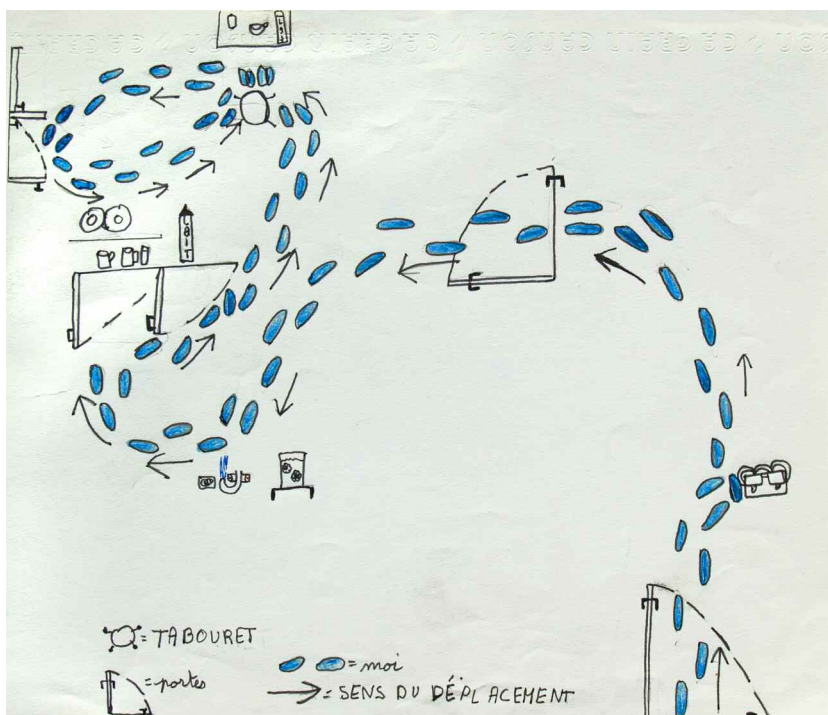 LAIT
LAIT
= TABOURET
= portes
= moi
= SENS DU DÉPLACEMENT